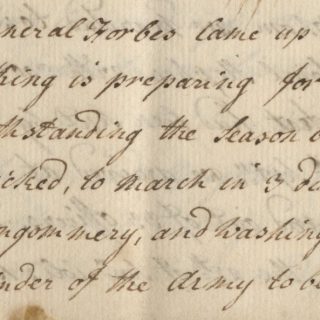 eneral Forbes Came up
thing is preparing for
thstanding the Season
icked, to march in 3 da
ngommery, and washing
inder of the Army to be